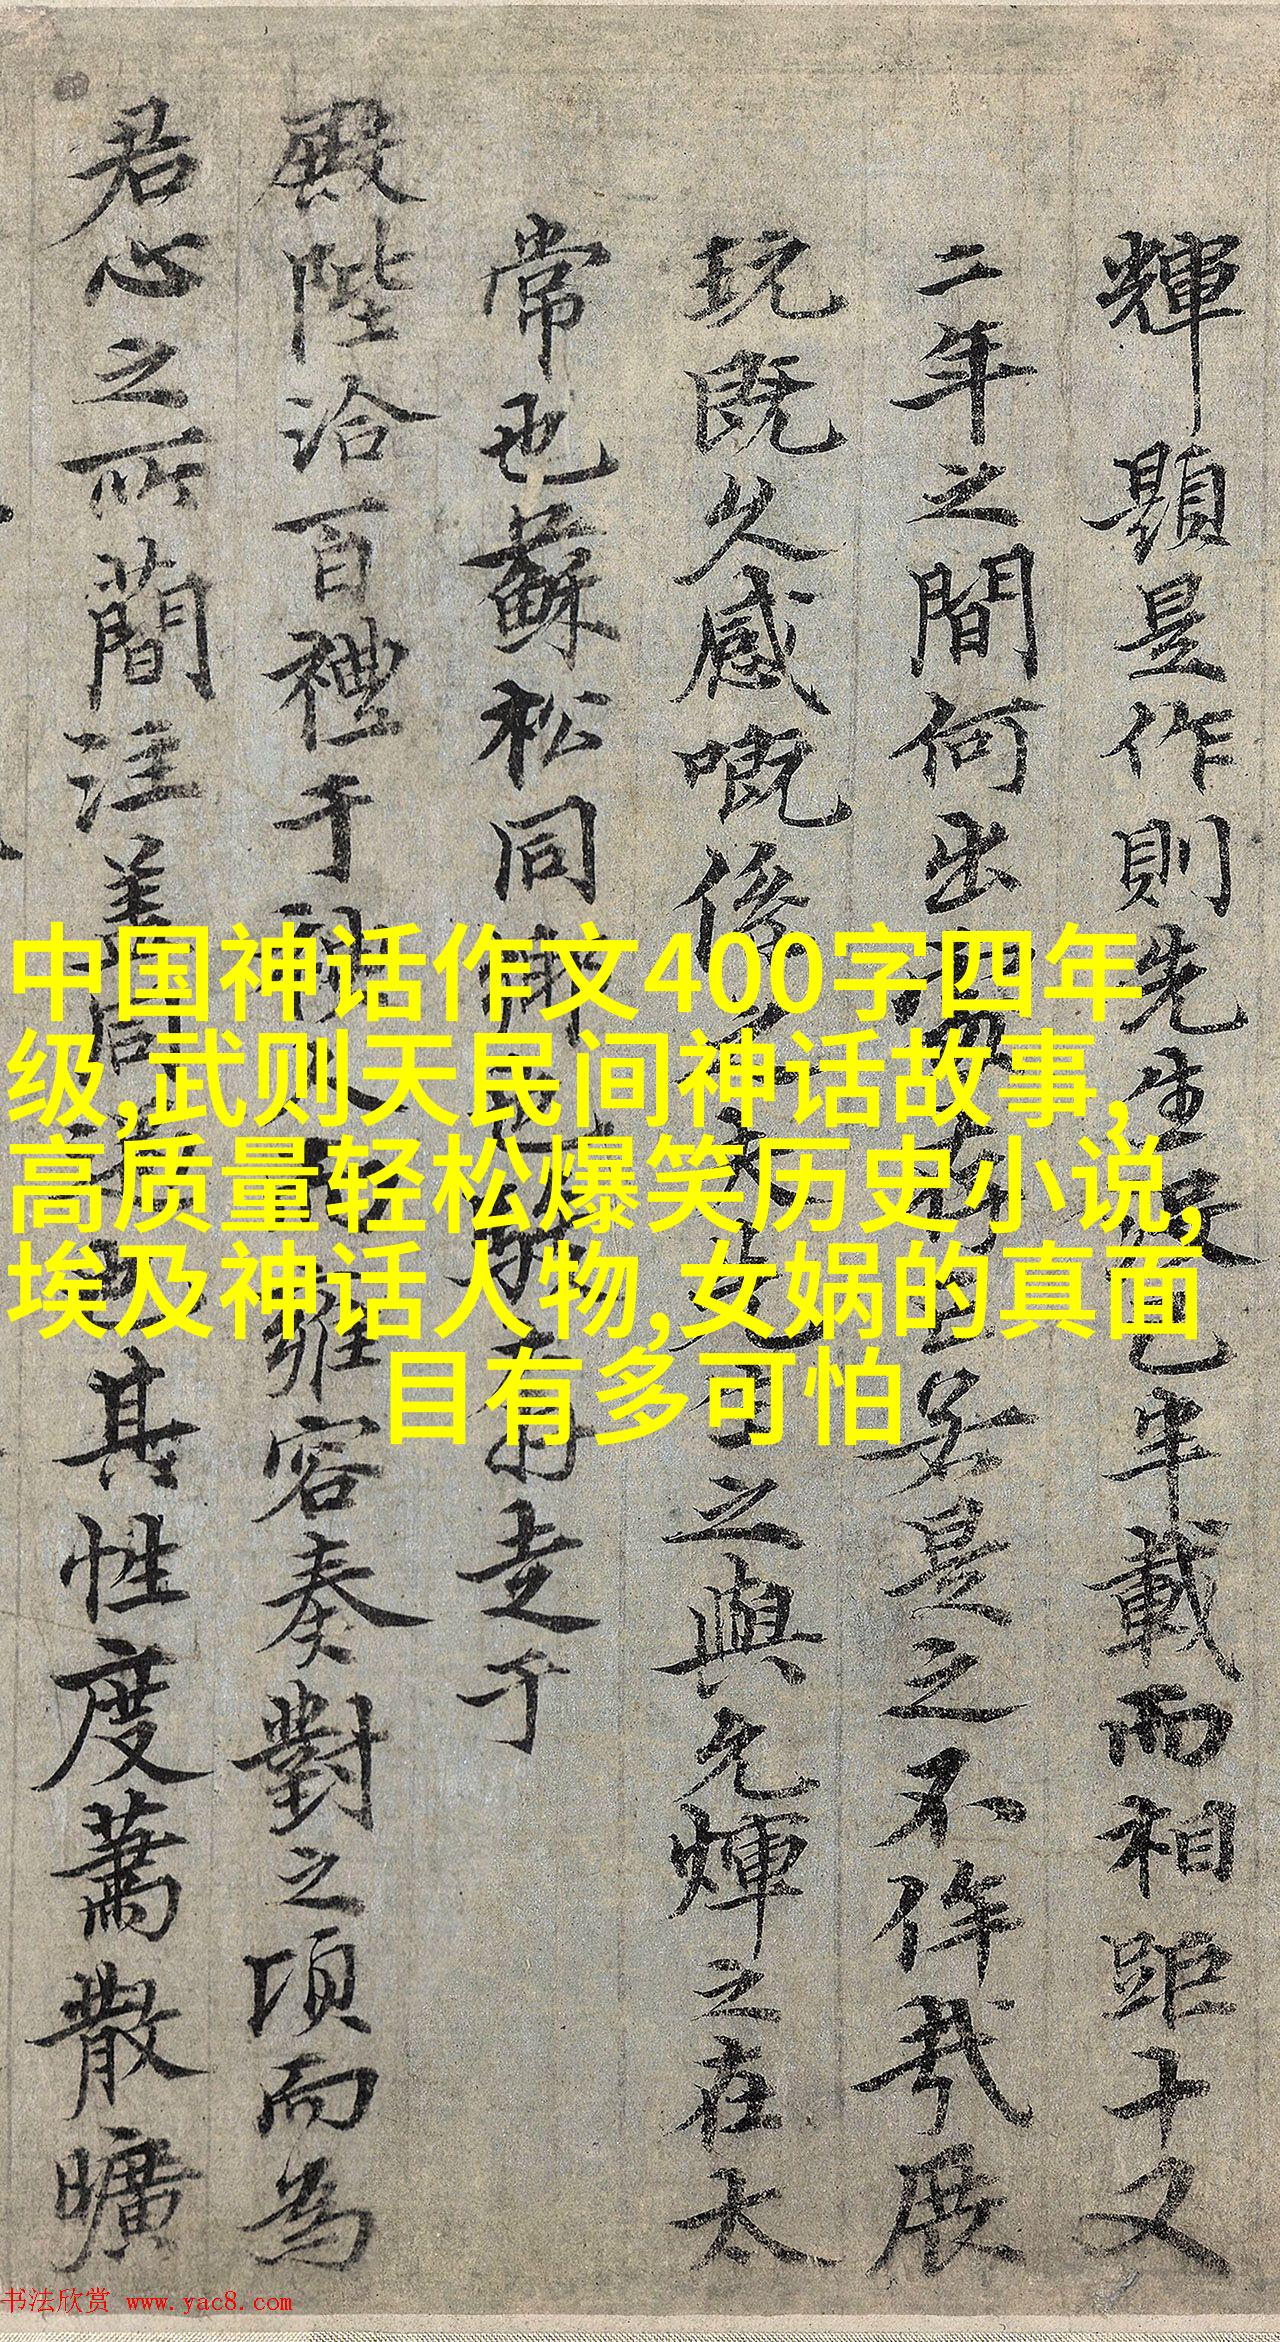 輝題是作則先生已半載而相距十又
二年之間何出若是之不侔哉展
玩既久感嘅之與允煇之在太
常也蘇松同走于
殿陛洽百禮于容奏對之頃而為
君心之所簡注其性度蕭散曠
中国神话作文400字四年
级,武则天民间神话故事,
高质量轻松爆笑历史小说,
埃及神话人物,女娲的真面
目有多可怕
书法欣赏 www.yac8.com